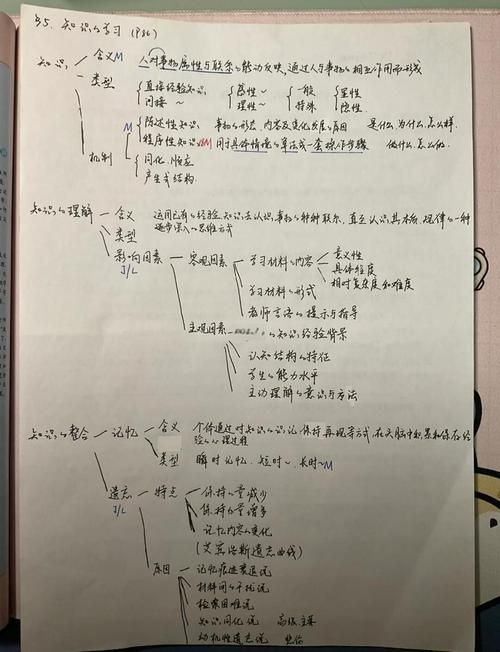 §5. 知识的学习 (P86)
知识 含义M 人对事物属性与联系的能动反映,通过人与事物的相互作用而形成
类型 直接经验知识 感性~ 一般 显性
间接~ 理性~ 特殊 隐性
M 陈述性知识 事物的形态,内容及变化发展的原因 是什么,为什么,怎么样
程序性知识 M 用于具体情境的算法或一套操作步骤 做什么,怎么做
机制 同化,顺应
产生式结构
知识的理解 含义 运用已有的经验,知识去认识事物的种种联系,直至认识其本质、规律的一种
逐步深入的思维方式
类型
影响因素 客观因素 学习材料的内容 意义性
J/L 具体程度
相对复杂度和难度
学习材料的形式
教师言语的提示与指导
主观因素 的知识经验背景
认知结构的特征
学生的能力水平
主动理解的意识与方法
知识的整合 记忆 含义 个体通过对知识的识记,保持,再现等方式,在头脑中积累和保存经
验的心理过程
类型 瞬时记忆. 短时~. 长时~M
遗忘 特点 保持的量减少
J/L 保持的量增多
记忆内容的变化
(艾宾浩斯遗忘曲线)
原因 记忆痕迹衰退说
材料间的干扰说
检索困难说
知识同化说 高级.主要
动机性遗忘说